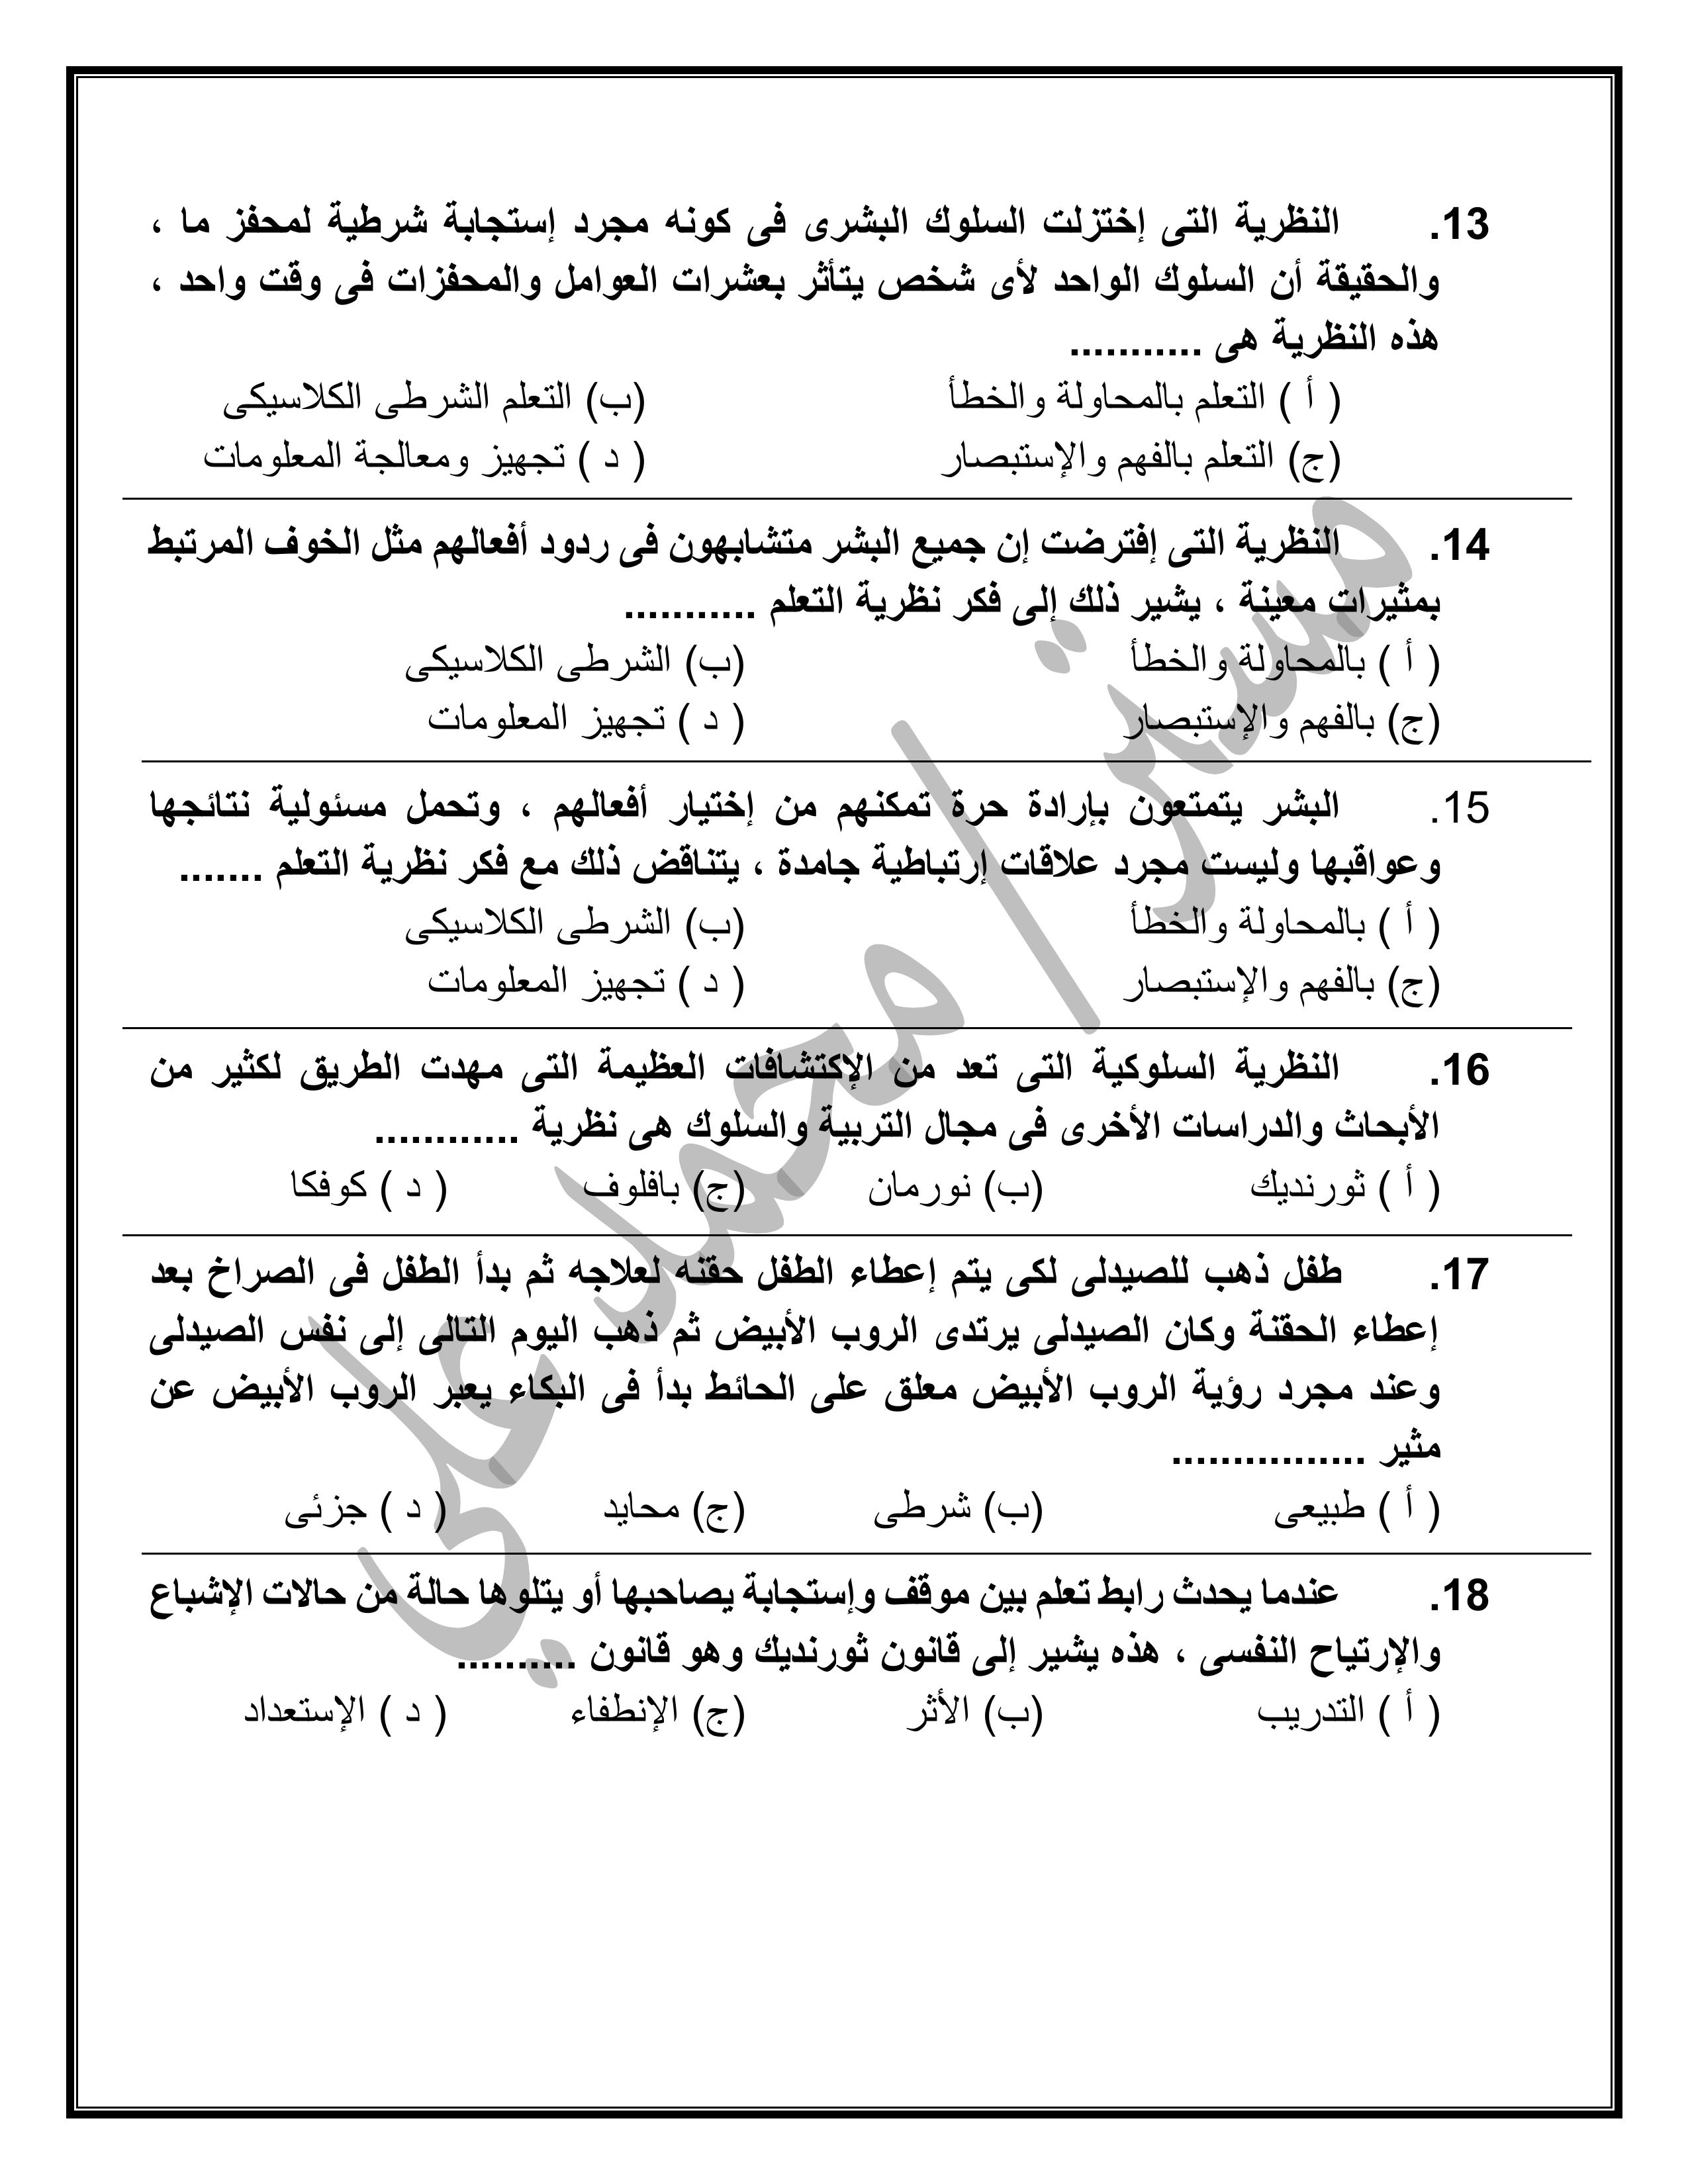 13. النظرية التى إختزلت السلوك البشرى فى كونه مجرد إستجابة شرطية لمحفز ما ،
والحقيقة أن السلوك الواحد لأى شخص يتأثر بعشرات العوامل والمحفزات فى وقت واحد ،
هذه النظرية هى ...........
( أ ) التعلم بالمحاولة والخطأ (ب) التعلم الشرطى الكلاسيكى
(ج) التعلم بالفهم والإستبصار ( د ) تجهيز ومعالجة المعلومات
14. النظرية التى إفترضت إن جميع البشر متشابهون فى ردود أفعالهم مثل الخوف المرتبط
بمثيرات معينة ، يشير ذلك إلى فكر نظرية التعلم ...........
( أ ) بالمحاولة والخطأ (ب) الشرطى الكلاسيكى
(ج) بالفهم والإستبصار ( د ) تجهيز المعلومات
15. البشر يتمتعون بإرادة حرة تمكنهم من إختيار أفعالهم ، وتحمل مسئولية نتائجها
وعواقبها وليست مجرد علاقات إرتباطية جامدة ، يتناقض ذلك مع فكر نظرية التعلم .......
( أ ) بالمحاولة والخطأ (ب) الشرطى الكلاسيكى
(ج) بالفهم والإستبصار ( د ) تجهيز المعلومات
16. النظرية السلوكية التى تعد من الإكتشافات العظيمة التى مهدت الطريق لكثير من
الأبحاث والدراسات الأخرى فى مجال التربية والسلوك هى نظرية ............
( أ ) ثورنديك (ب) نورمان (ج) بافلوف ( د ) كوفكا
17. طفل ذهب للصيدلى لكى يتم إعطاء الطفل حقنه لعلاجه ثم بدأ الطفل فى الصراخ بعد
إعطاء الحقنة وكان الصيدلى يرتدى الروب الأبيض ثم ذهب اليوم التالى إلى نفس الصيدلى
وعند مجرد رؤية الروب الأبيض معلق على الحائط بدأ فى البكاء يعبر الروب الأبيض عن
مثير ................
( أ ) طبيعى (ب) شرطى (ج) محايد ( د ) جزئى
18. عندما يحدث رابط تعلم بين موقف وإستجابة يصاحبها أو يتلوها حالة من حالات الإشباع
والإرتياح النفسى ، هذه يشير إلى قانون ثورنديك وهو قانون ..........
( أ ) التدريب (ب) الأثر (ج) الإنطفاء ( د ) الإستعداد
مستر/ محمد علي